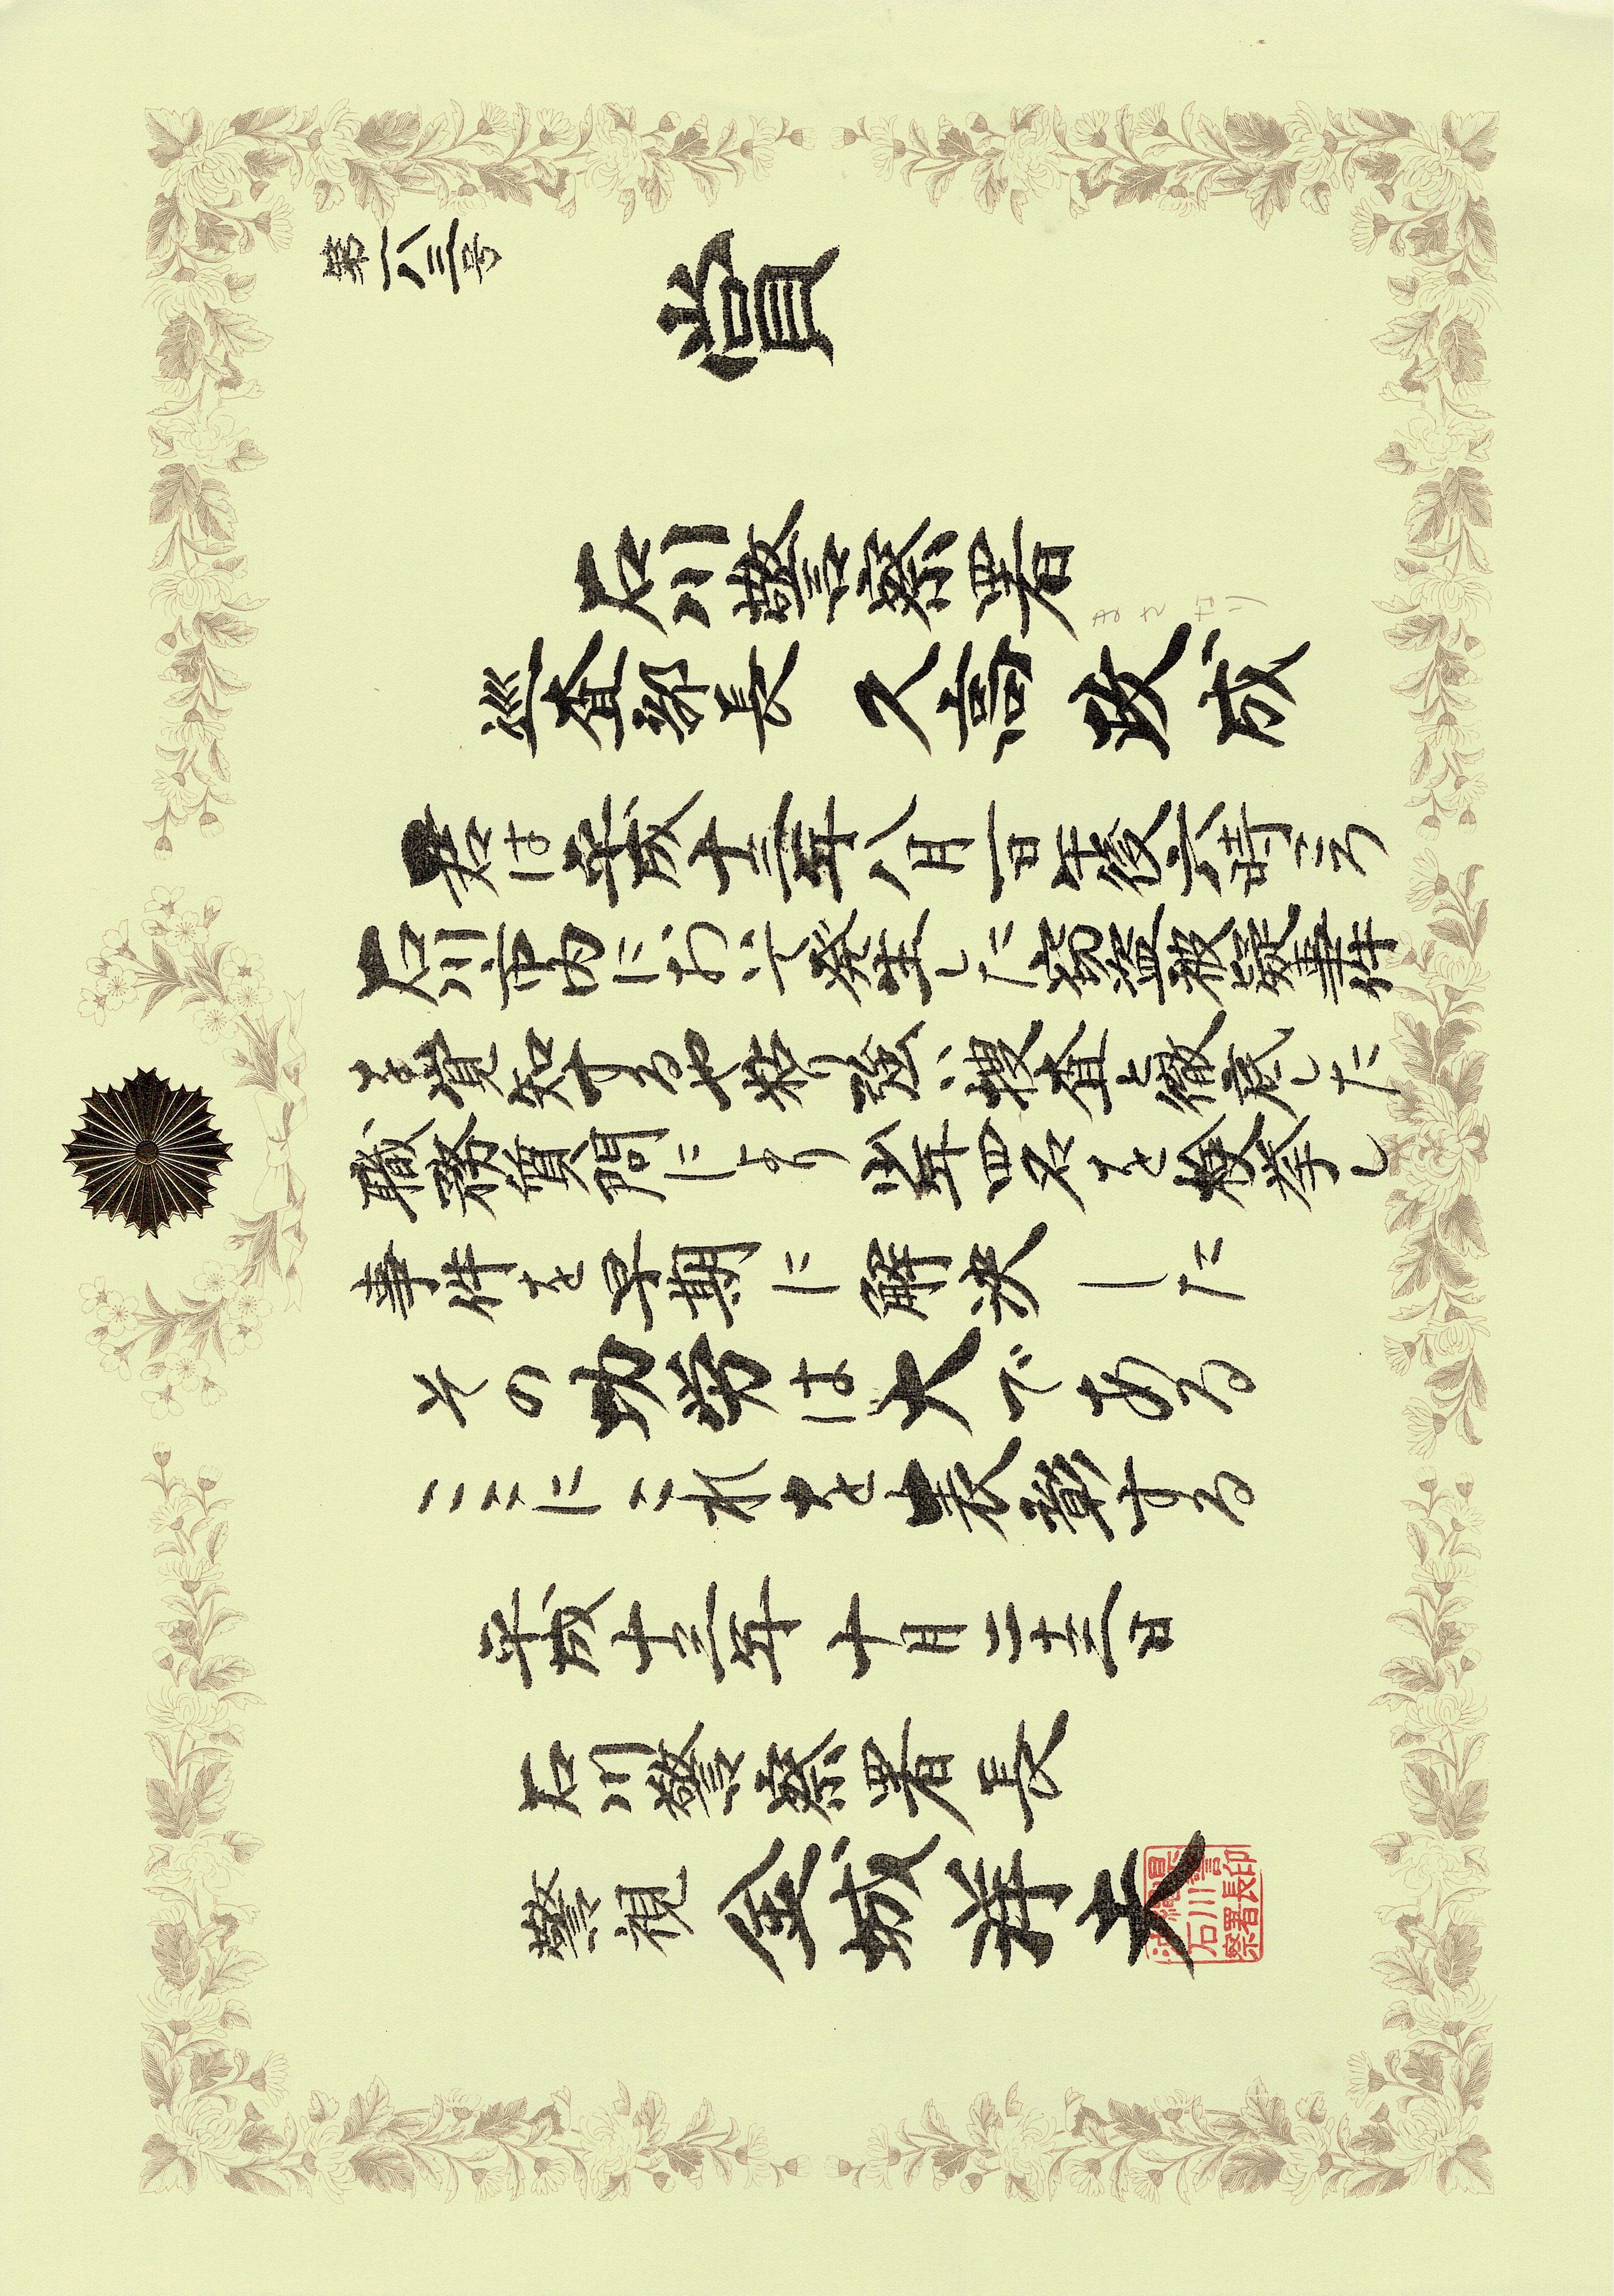 第一八三号
賞
石川警察署
巡査部長 久高政成
君は平成十三年八月一日午後六時ころ
石川市内において発生した窃盗被疑事件
を覚知するや粘り強い捜査と徹底した
職務質問により少年四名を検挙し
事件を早期に解決した
その功労は大である
ここにこれを表彰する
平成十三年十月二十三日
石川警察署長
警視 金城祥夫
沖縄県
石川警
察署長印